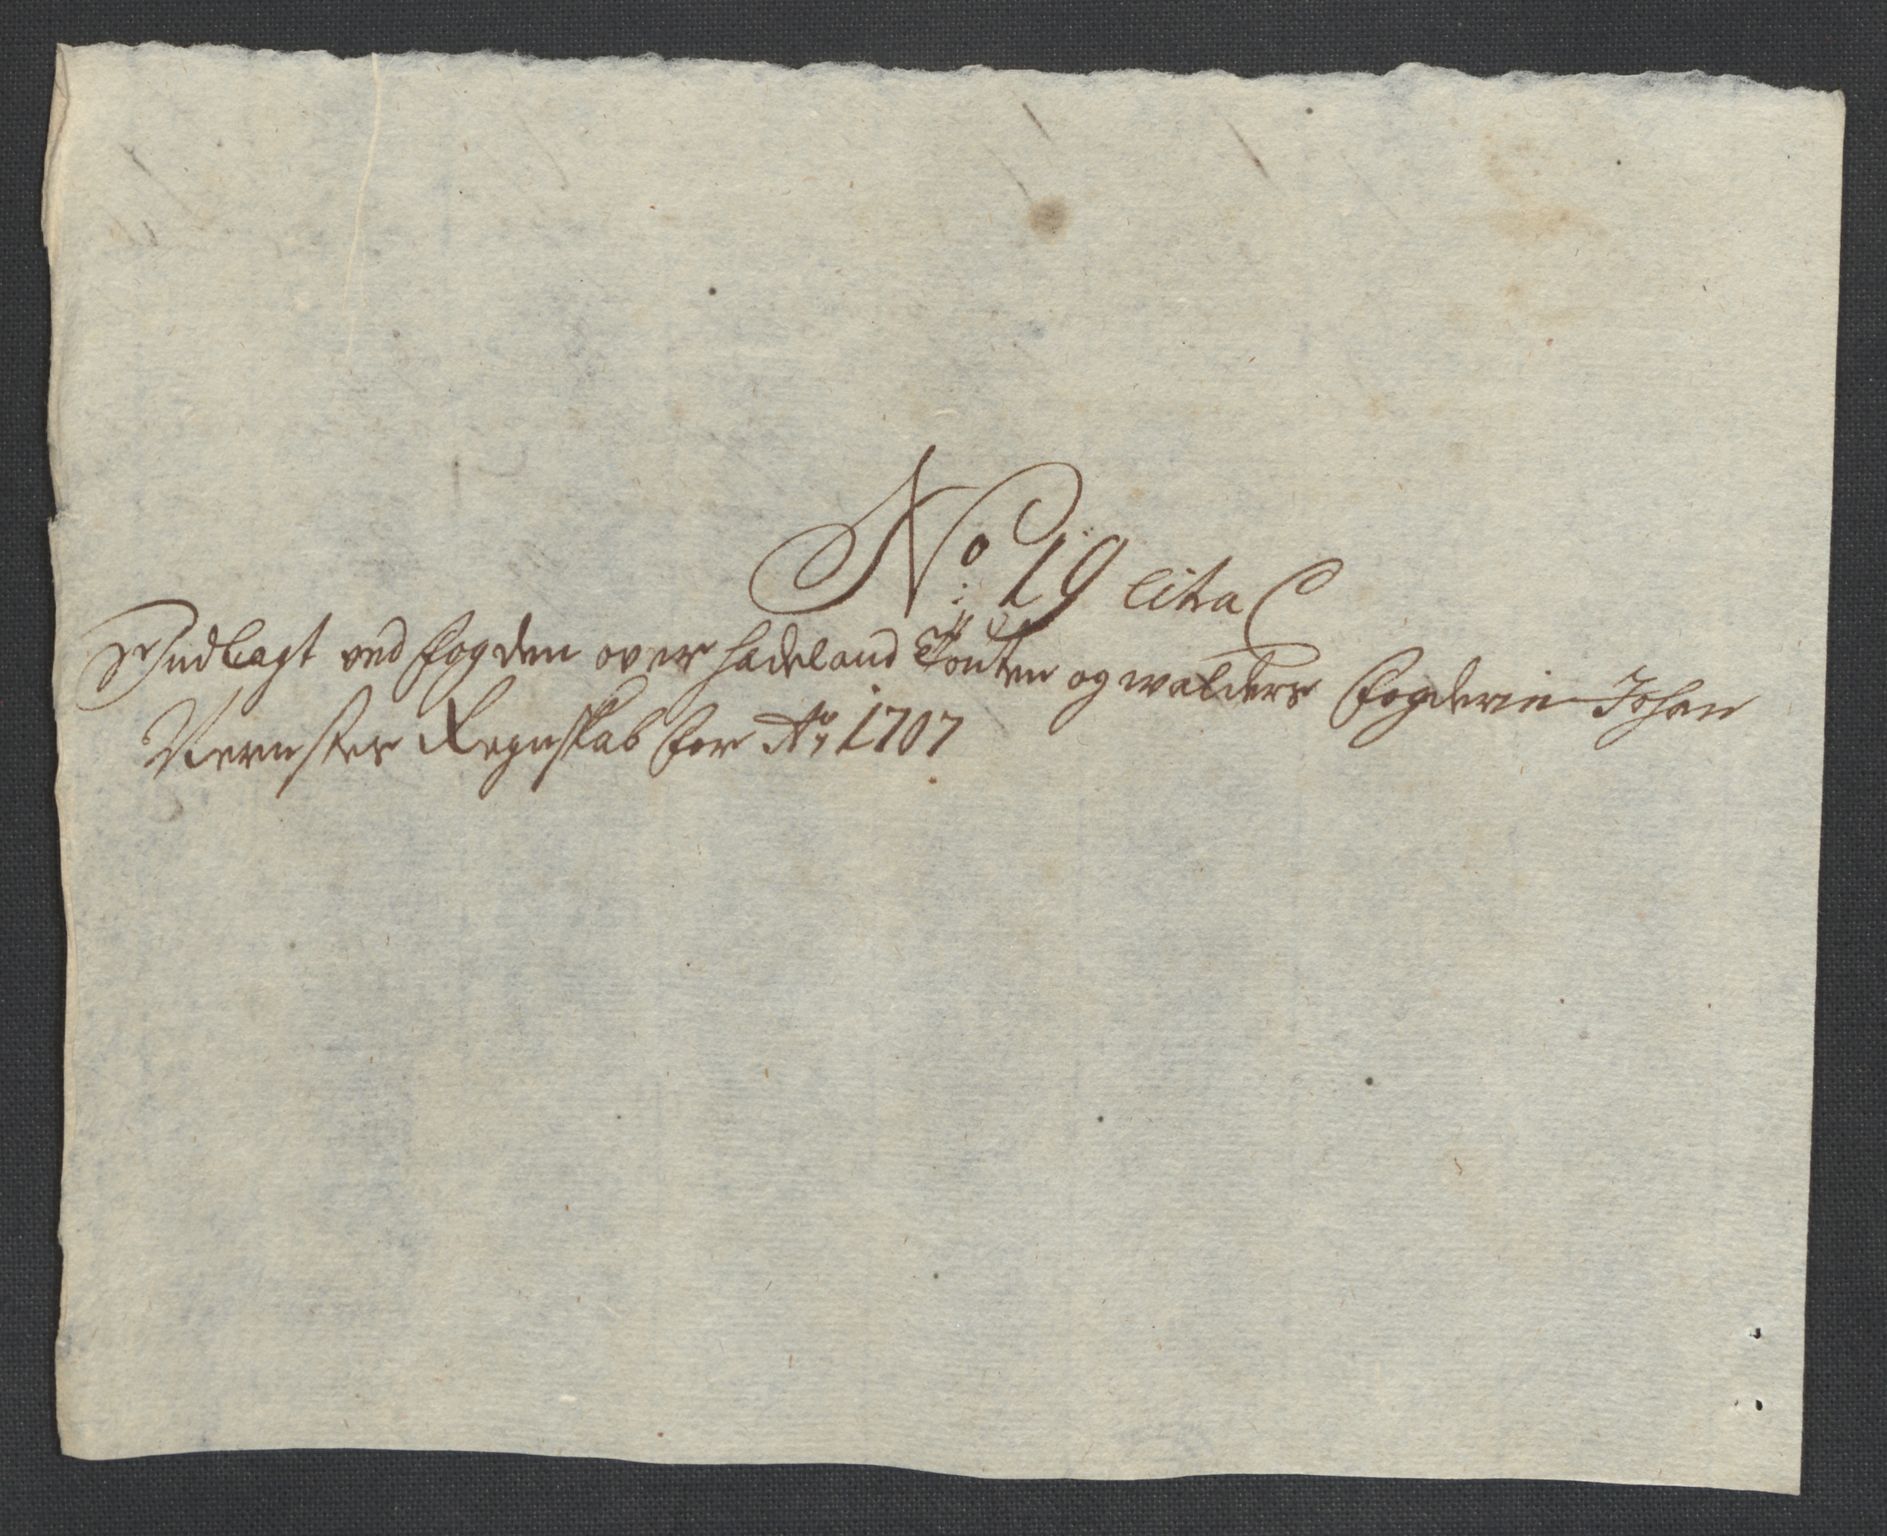 No: 19 litra C
Indlagt ved fogden over Hadeland Touten og walders fogderie Johan
Vernstes Regnskab for Ao 1707